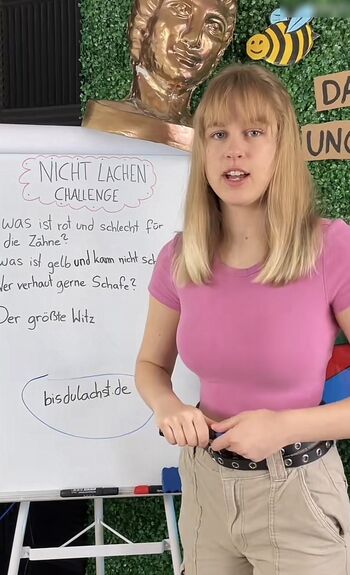 NICHT LACHEN
CHALLENGE
was ist rot und schlecht für
die Zähne?
was ist gelb und kann nicht
Wer verhaut gerne Schafe?
Der größte Witz
bisdulachst.de